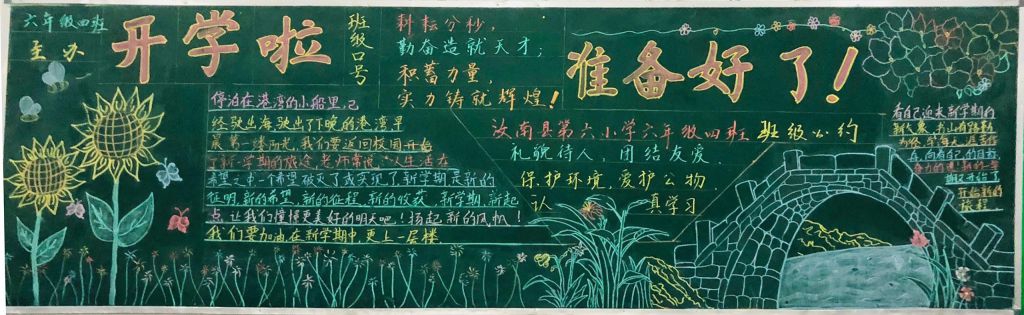 六年级四班
主办
开学啦
班级口号
耕耘分秒,
勤奋造就天才;
积蓄力量,
实力铸就辉煌!
准备好了!
停泊在港湾的小船里,已
经驶出海,驶出了下晚的港湾里
晨第一缕阳光,我们要返回校园开始
了新学期的旅途,老师常说:"人生活在
希望之中一个希望破灭了或实现了新学期是新的
证明,新的希望,新的征程,新的收获,新学期,新起
点,让我们憧憬更美好的明天吧!扬起新的风帆!
我们要加油在新学期中,更上一层楼
汝南县第六小学六年级四班 班级公约
礼貌待人,团结友爱.
保护环境,爱护公物.
认 真学习
有自己迎来新学期的
在,向着自己的目标
努力的
开始了
在新的
旅程